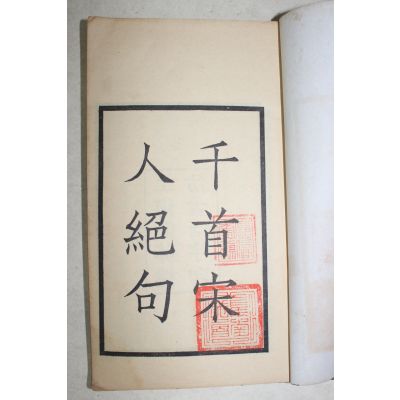 千首宋
人絕句